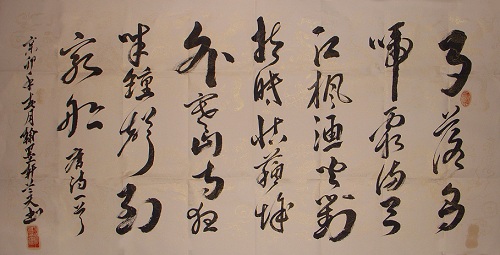 月落烏
啼霜满天
江枫渔火對
愁眠姑蘇城
外寒山寺夜
半鐘聲到
客船 唐诗一首
辛卯年 月翰墨軒 书